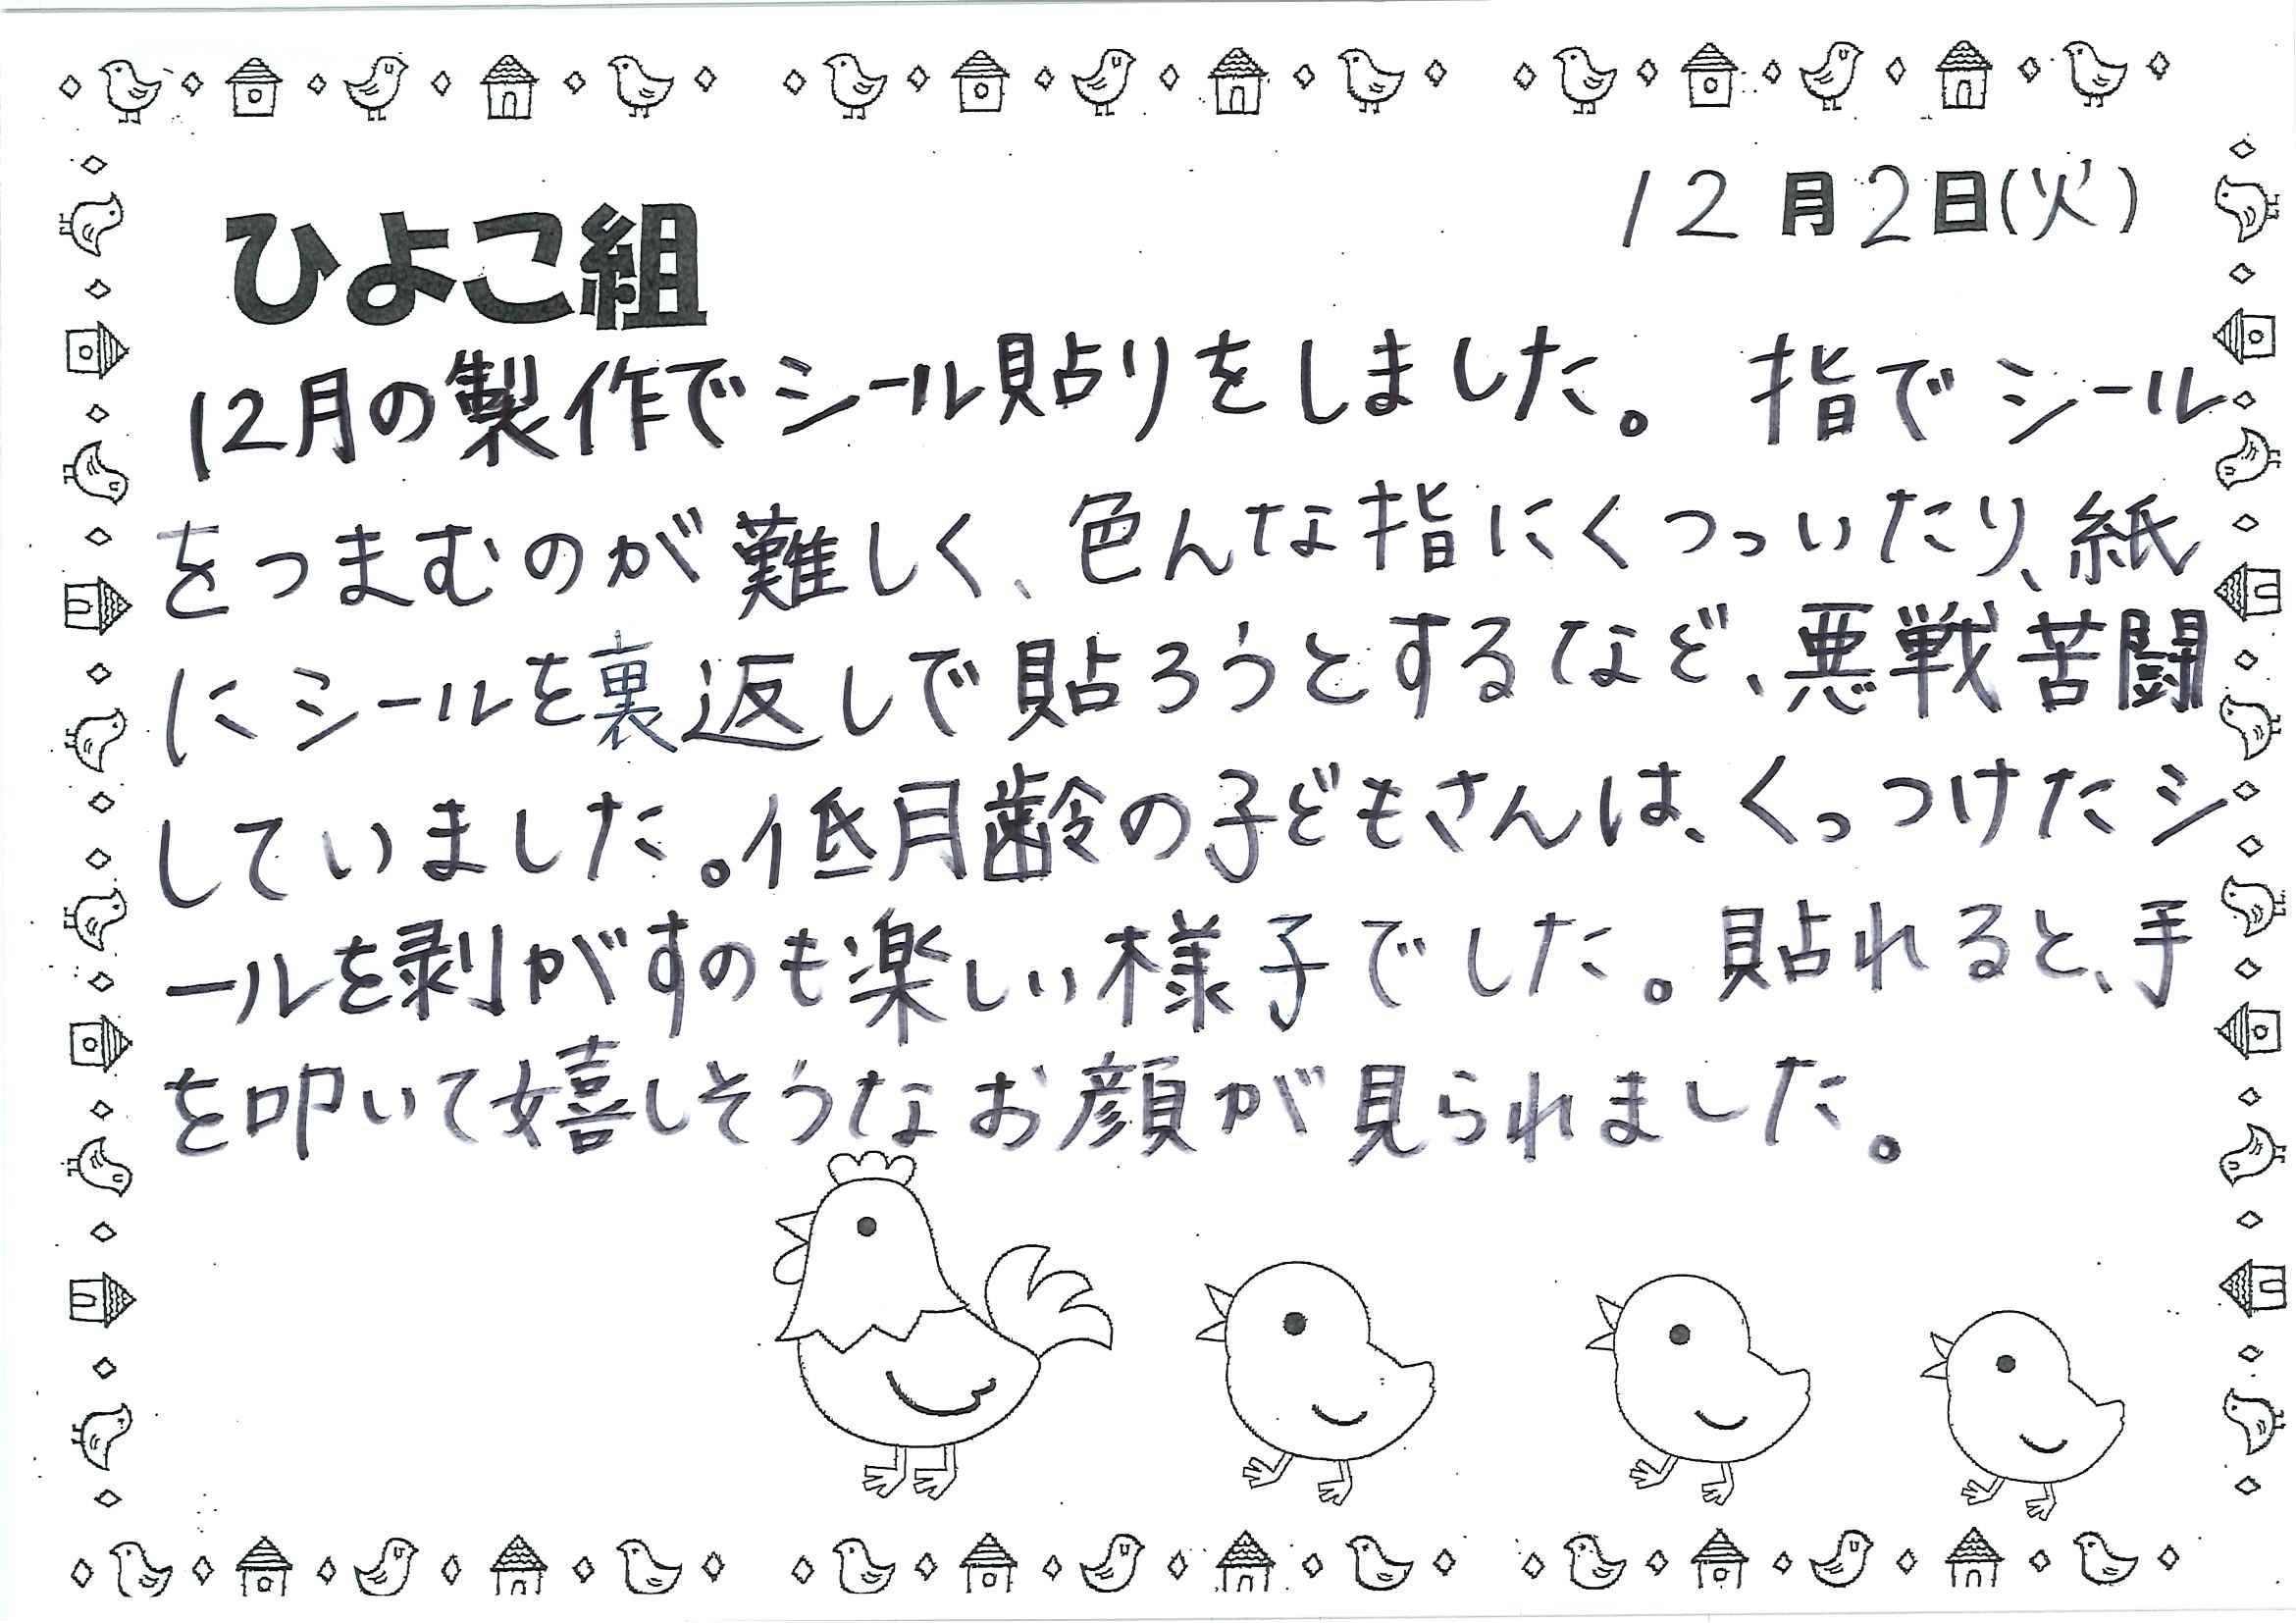 12月2日(火)
ひよこ組
12月の製作でシール貼りをしました。指でシール
をつまむのが難しく、色んな指にくっついたり、紙
にシールを裏返しで貼ろうとするなど、悪戦苦闘
していました。低月齢の子どもさんは、くっつけたシ
ールを剥がすのも楽しい様子でした。貼れると、手
を叩いて嬉しそうなお顔が見られました。